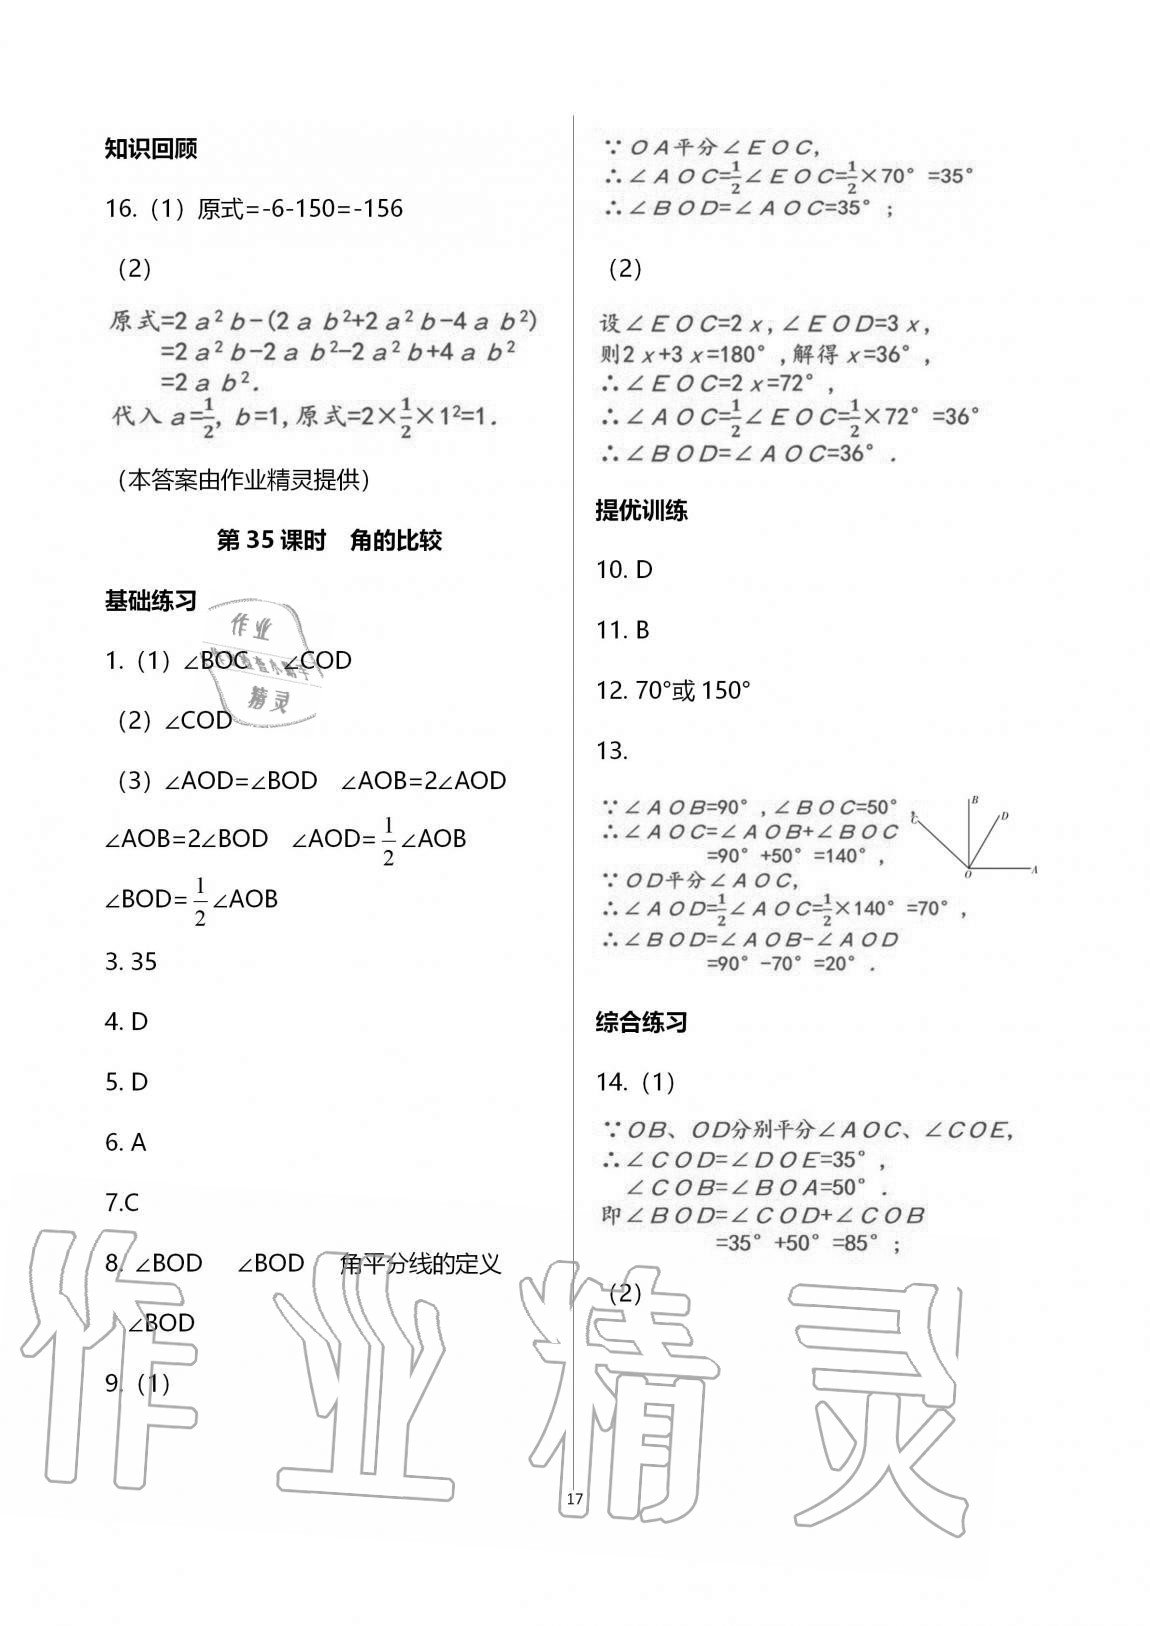 知识回顾
16.（1）原式=-6-150=-156
（2）
原式=2a²b-(2ab²+2a²b-4ab²)
=2a²b-2ab²-2a²b+4ab²
=2ab².
代入a=1/2, b=1,原式=2×1/2×1²=1.
（本答案由作业精灵提供）
第 35 课时 角的比较
基础练习
作业
精灵
1.（1）∠BOC ∠COD
（2）∠COD
（3）∠AOD=∠BOD ∠AOB=2∠AOD
∠AOB=2∠BOD ∠AOD=1/2∠AOB
∠BOD=1/2∠AOB
3. 35
4. D
5. D
6. A
7.C
8. ∠BOD ∠BOD 角平分线的定义
∠BOD
9.（1）
∵OA平分∠EOC,
∴∠AOC=1/2∠EOC=1/2×70°=35°
∴∠BOD=∠AOC=35°;
（2）
设∠EOC=2x,∠EOD=3x,
则2x+3x=180°,解得x=36°,
∴∠EOC=2x=72°,
∴∠AOC=1/2∠EOC=1/2×72°=36°
∴∠BOD=∠AOC=36°.
提优训练
10. D
11. B
12. 70°或 150°
13.
∵∠AOB=90°,∠BOC=50°,
∴∠AOC=∠AOB+∠BOC
=90°+50°=140°,
∵OD平分∠AOC,
∴∠AOD=1/2∠AOC=1/2×140°=70°,
∴∠BOD=∠AOB-∠AOD
=90°-70°=20°.
B
D
C
O
A
综合练习
14.（1）
∵OB、OD分别平分∠AOC、∠COE,
∴∠COD=∠DOE=35°,
∠COB=∠BOA=50°.
即∠BOD=∠COD+∠COB
=35°+50°=85°;
（2）
作业精灵
17